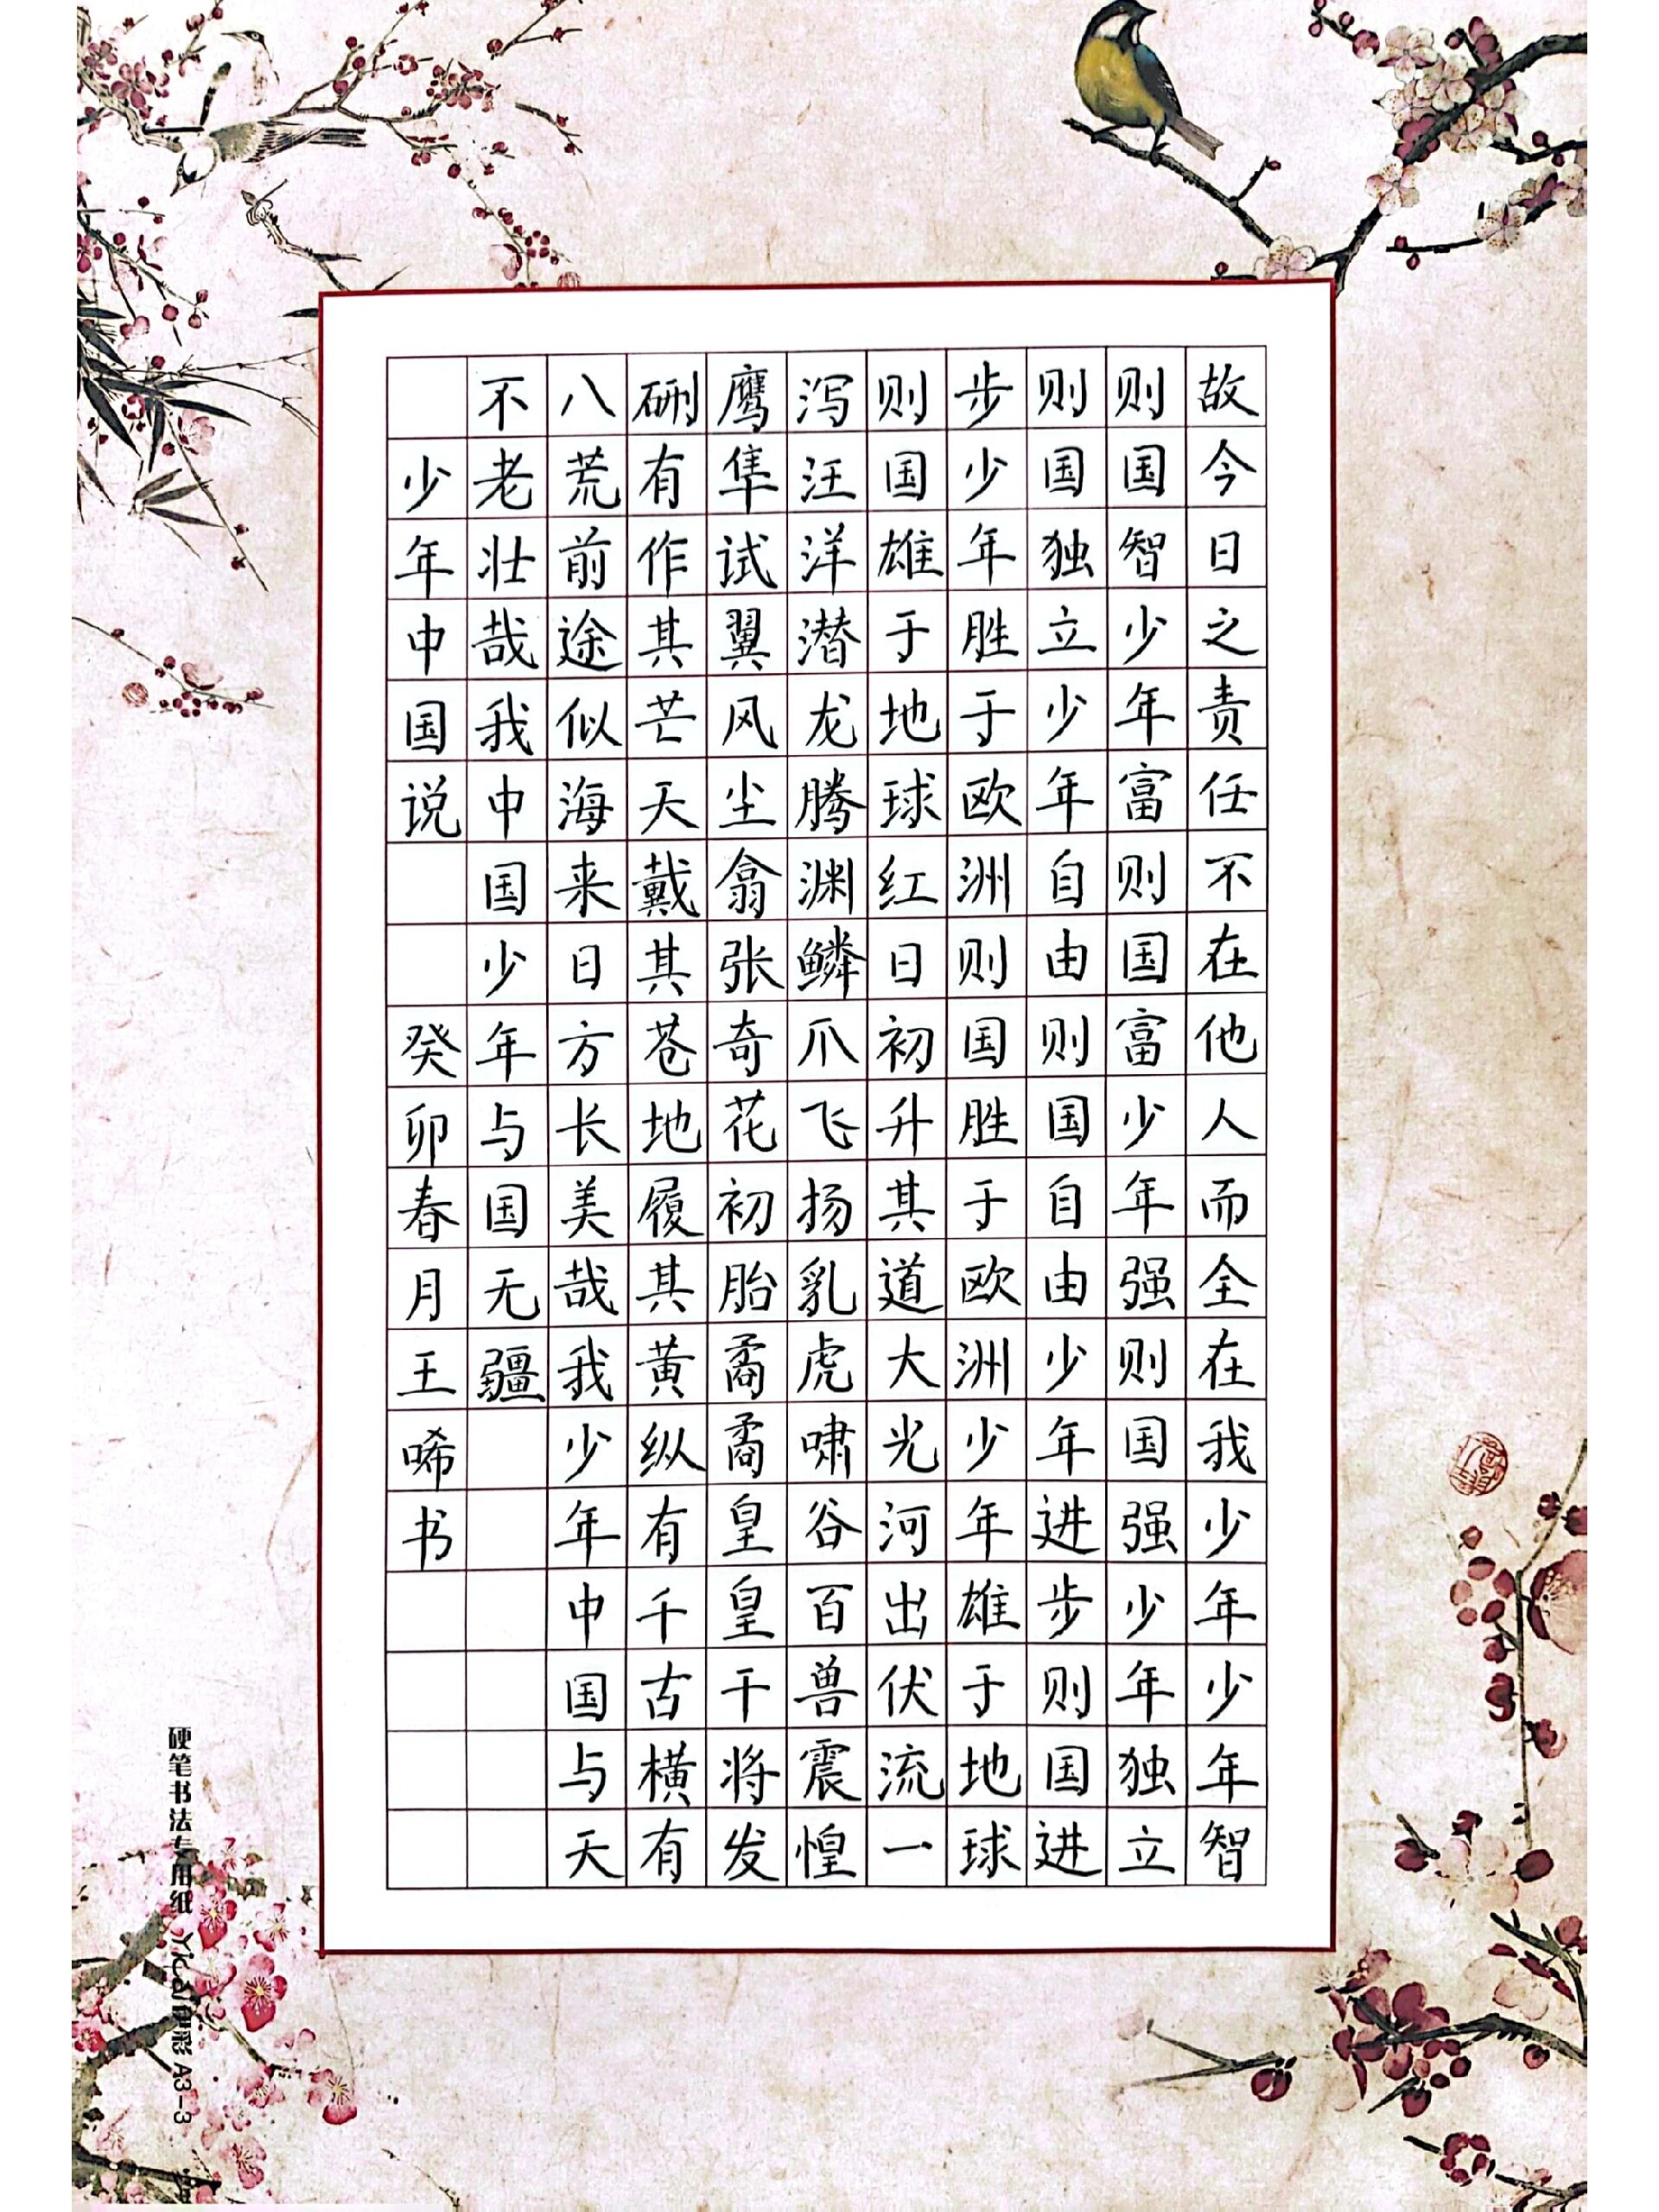 故今日之责任不在他人而全在我少年少年智
则国智少年富则国富少年强则国强少年独立
则国独立少年自由则国自由少年进步则国进
步少年胜于欧洲则国胜于欧洲少年雄于地球
则国雄于地球红日初升其道大光河出伏流一
泻汪洋潜龙腾渊鳞爪飞扬乳虎啸谷百兽震惶
鹰隼试翼风尘翕张奇花初胎矞矞皇皇干将发
硎有作其芒天戴其苍地履其黄纵有千古横有
八荒前途似海来日方长美哉我少年中国与天
不老壮哉我中国少年与国无疆
少年中国说 癸卯春月王唏书
硬笔书法专用纸 A3-3